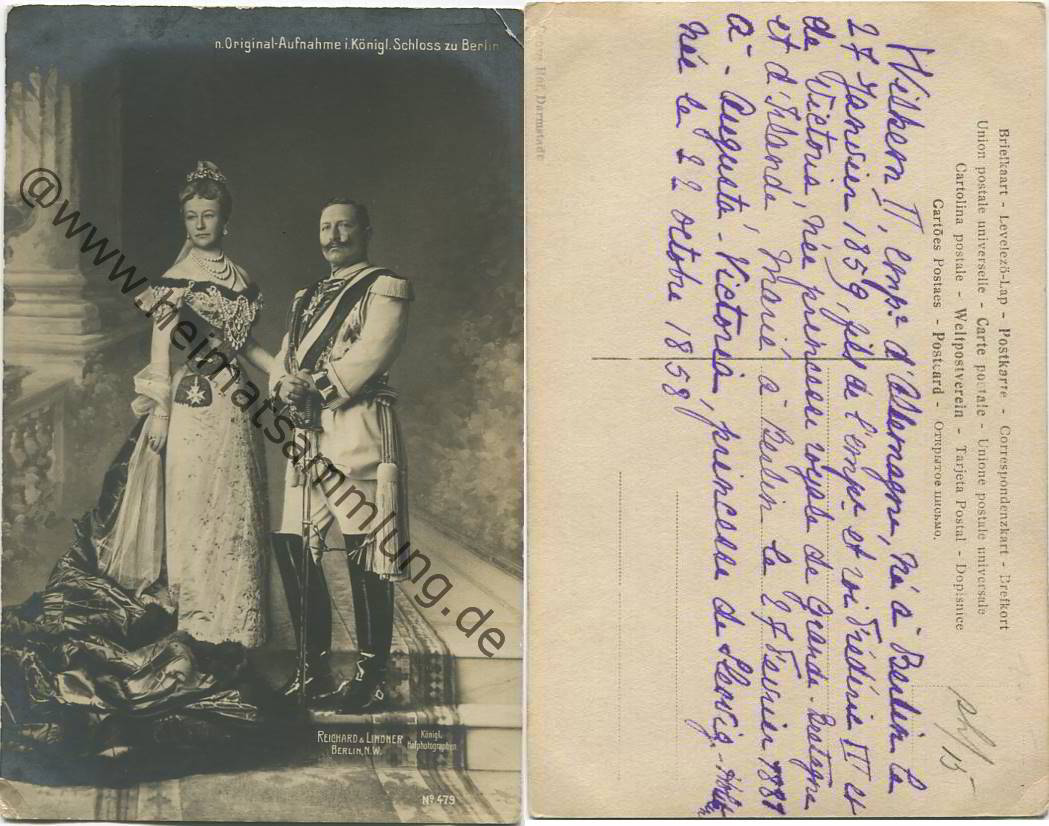 n. Original-Aufnahme i. Königl. Schloss zu Berlin
@www.heimatsammlung.de
REICHARD & LINDNER
BERLIN, N.W.
Königl.
Hofphotographen
No 479
Hof, Darmstadt
Briefkaart - Levelező-Lap - Postkarte - Correspondenzkart - Brefkort
Union postale universelle - Carte postale - Unione postale universale
Cartolina postale - Weltpostverein - Tarjeta Postal - Dopisnice
Cartões Postaes - Postcard - Открытое письмо.
Wilhem II, empr d'Allemagne, né à Berlin le
27 Janvier 1859, fils de l'empr et roi Frédéric III et
de Victoria, née princesse royale de Grande-Bretagne
et d'Irlande. Marié à Berlin le 27 Février 1881
à - Augusta - Victoria, princesse de Slesvig-Holstein
née le 22 octobre 1858
15